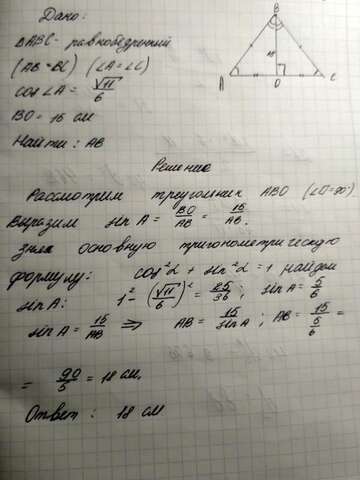 Дано:
ΔABC - равнобедренный
(AB = BC) (∠A = ∠C)
cos∠A = √11/6
BO = 15 см
Найти: AB
B
15
A
O
C
Решение
Рассмотрим треугольник ABO (∠O = 90°)
Выразим sin A = BO/AB = 15/AB.
зная основную тригонометрическую
формулу: cos²α + sin²α = 1 найдем
sin A: 1² - (√11/6)² = 25/36; sin A = 5/6
sin A = 15/AB ⇒ AB = 15/sin A; AB = 15/(5/6) =
= 90/5 = 18 см.
Ответ: 18 см